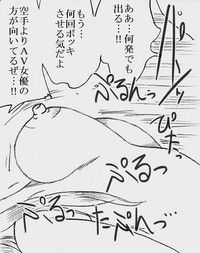 ああ…何発でも
出る…!!
もう…
何回ボッキ
させる気だよ
空手よりAV女優の
方が向いてるぜ…!!
ぷるんっ
ぴた
ぷるっ
ぷるっ
たぷんっ